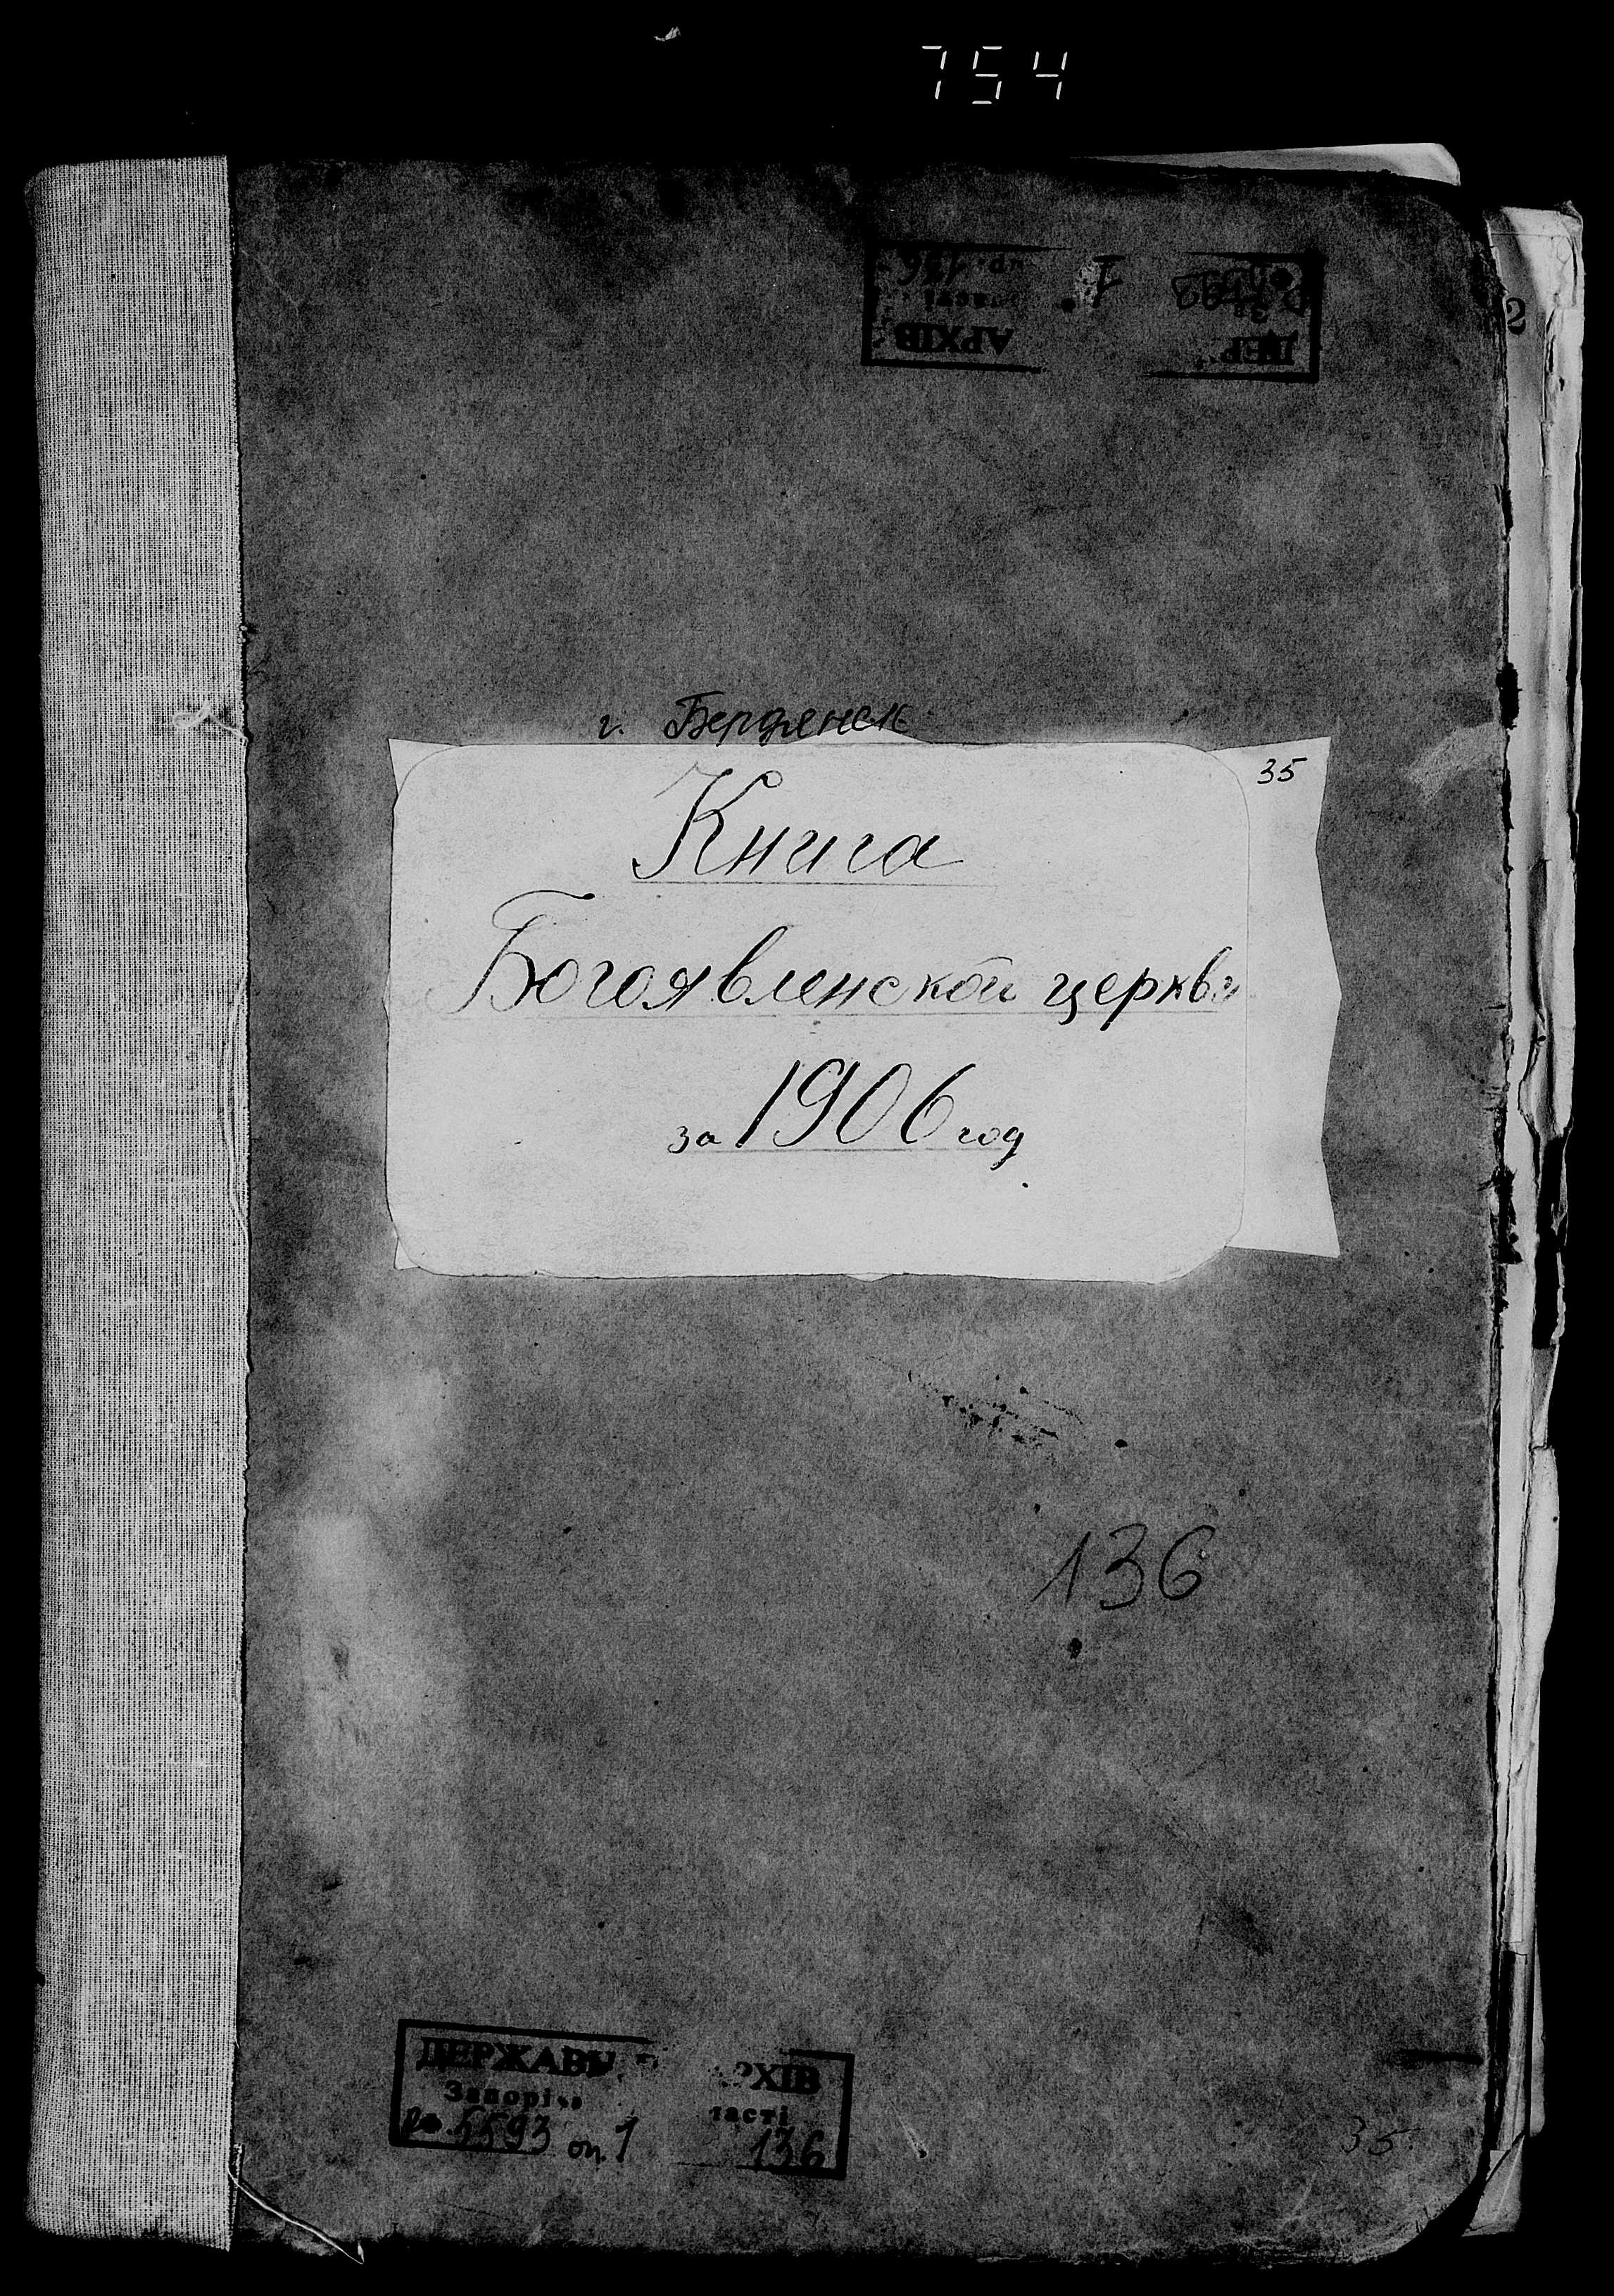 754
АРХІВ
2
г. Бердянск
35
Книга
Богоявленской церкви
за 1906 год
136
ДЕРЖАВН РХІВ
Запоріз ласті
Р. 5593 оп. 1 136
35